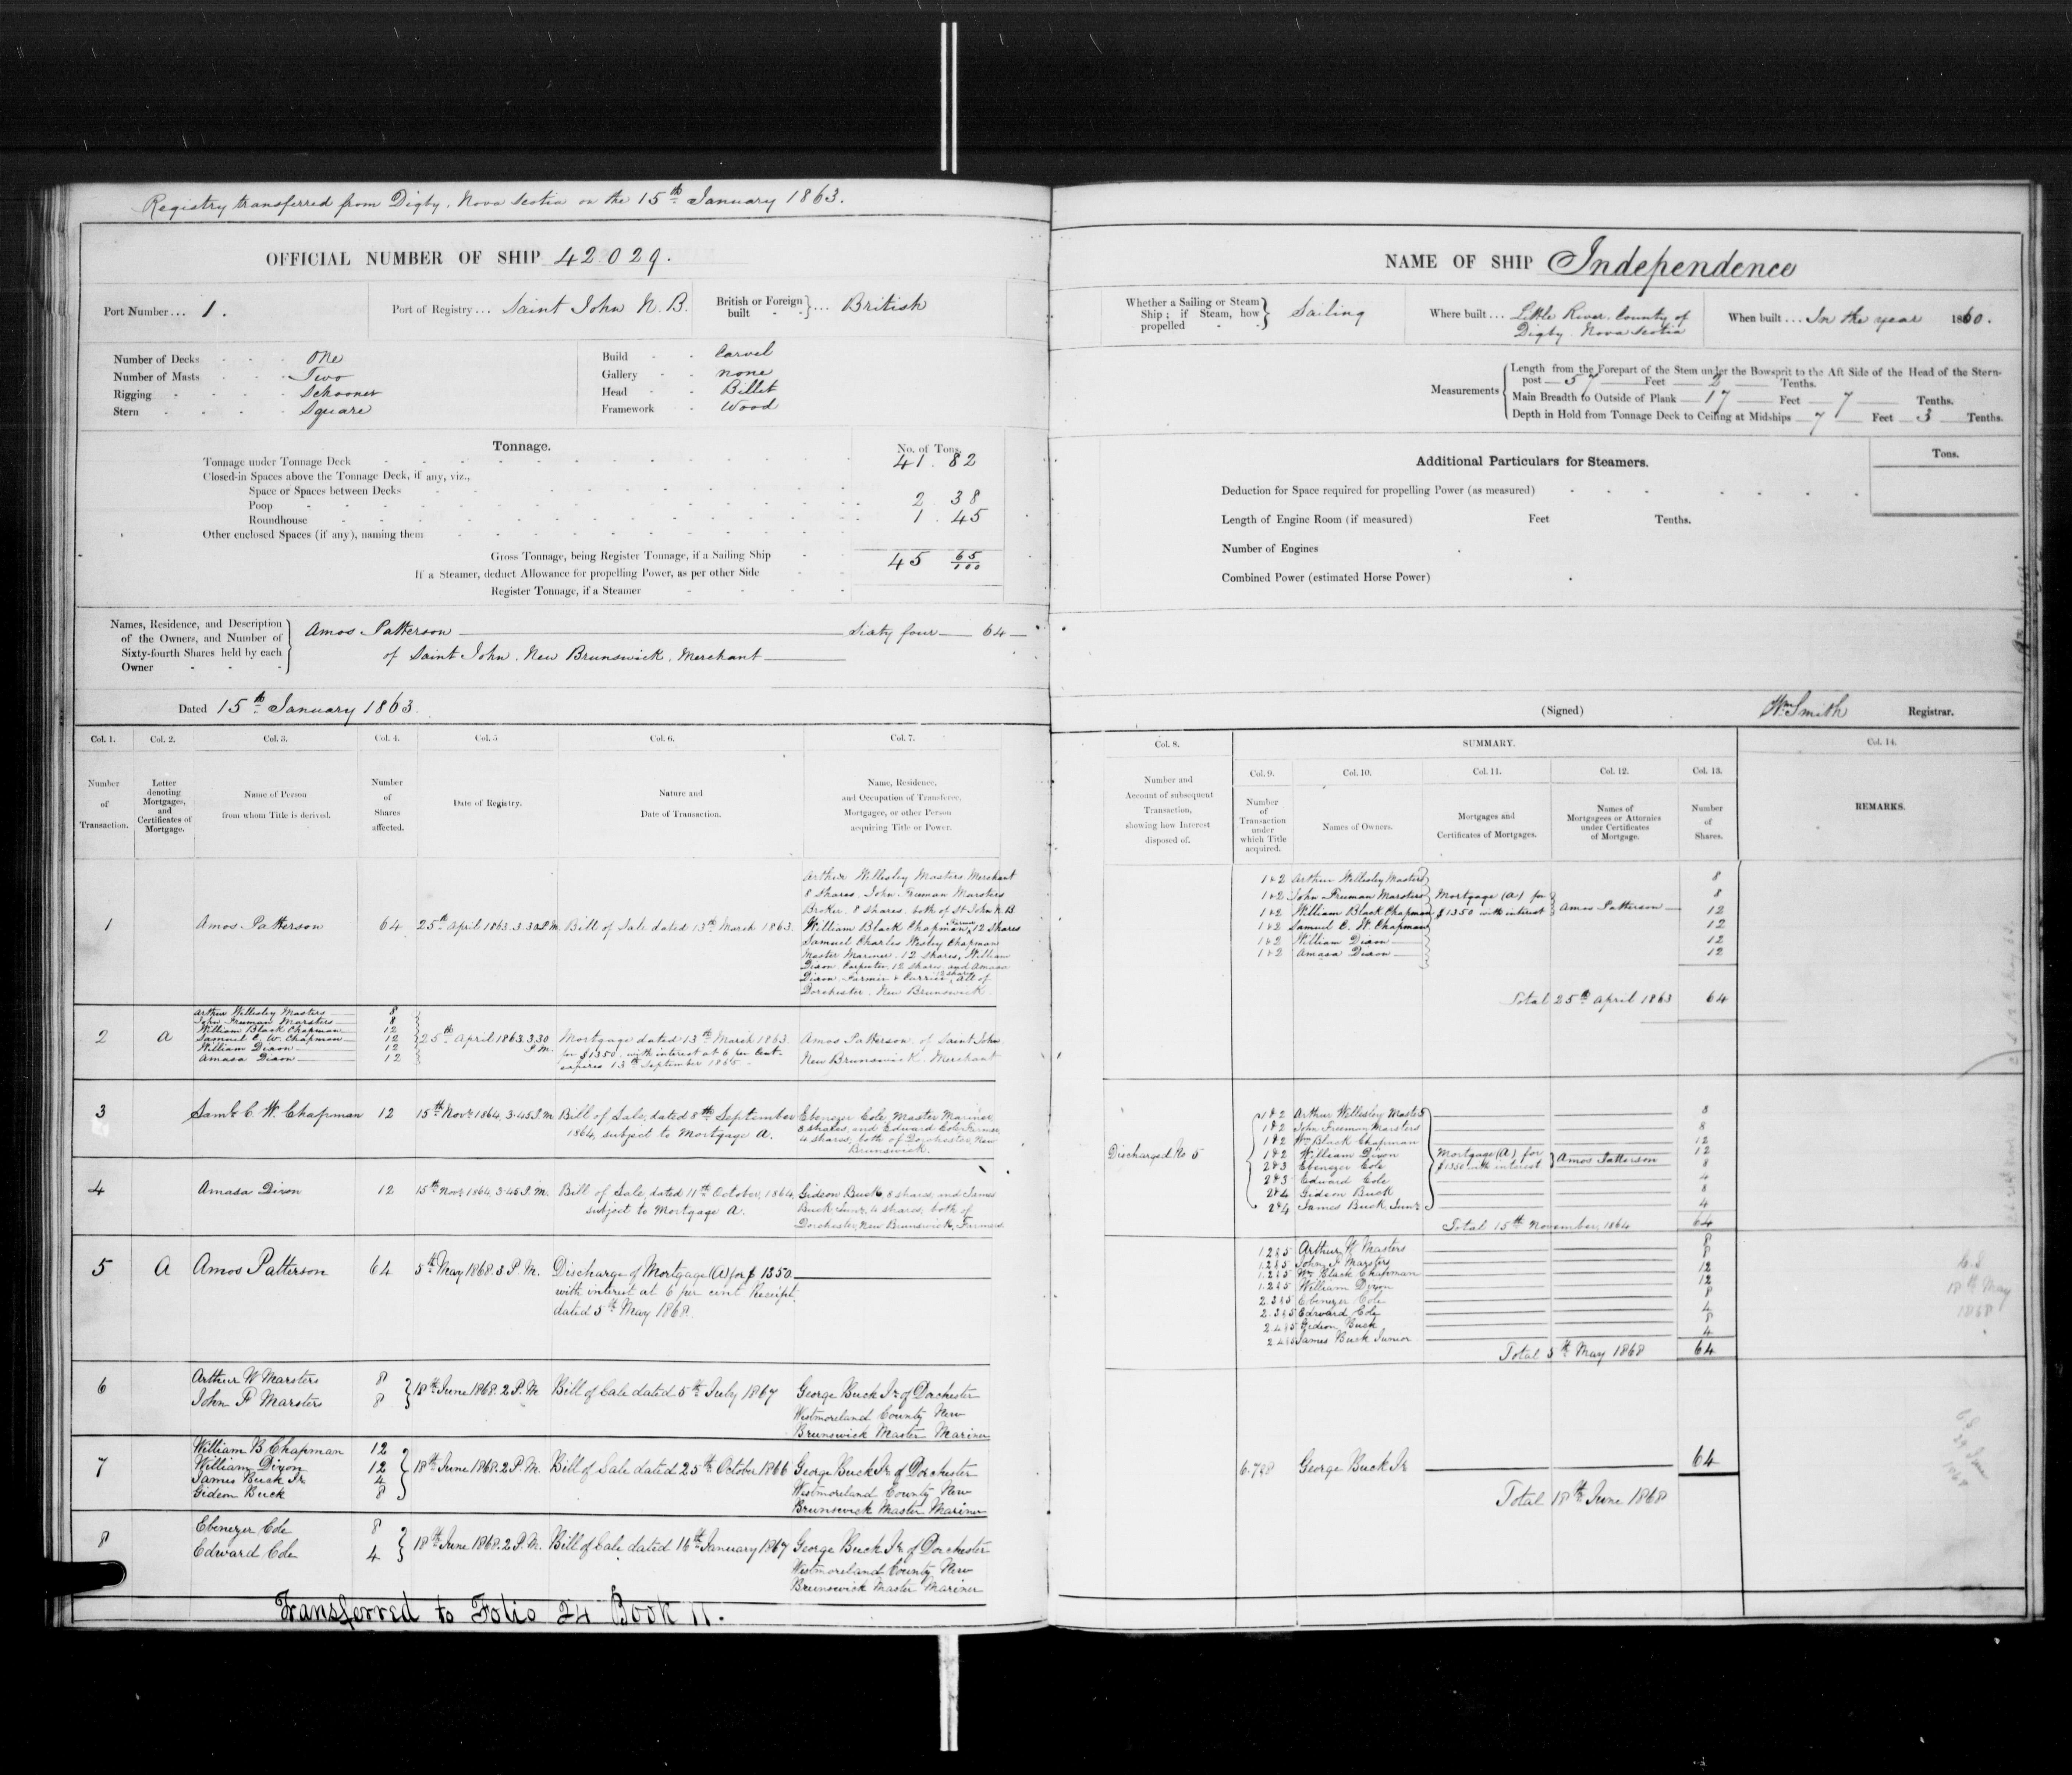 Registry transferred from Digby, Nova Scotia on the 15th January 1863.
OFFICIAL NUMBER OF SHIP 42.029.
Port Number... 1.
Port of Registry... Saint John N.B.
British or Foreign built }... British
Number of Decks One
Number of Masts Two
Rigging Schooner
Stern Square
Build Carvel
Gallery none
Head Billet
Framework Wood
Tonnage.
No. of Tons.
Tonnage under Tonnage Deck 41.82
Closed-in Spaces above the Tonnage Deck, if any, viz.,
Space or Spaces between Decks
Poop 2.38
Roundhouse 1.45
Other enclosed Spaces (if any), naming them
Gross Tonnage, being Register Tonnage, if a Sailing Ship 45 65/100
If a Steamer, deduct Allowance for propelling Power, as per other Side
Register Tonnage, if a Steamer
Names, Residence, and Description
of the Owners, and Number of
Sixty-fourth Shares held by each
Owner
Amos Patterson Sixty four 64
of Saint John, New Brunswick, Merchant
Dated 15th January 1863.
Col. 1. Col. 2. Col. 3. Col. 4. Col. 5 Col. 6. Col. 7.
Number of Transaction.
Letter denoting Mortgages, and Certificates of Mortgage.
Name of Person from whom Title is derived.
Number of Shares affected.
Date of Registry.
Nature and Date of Transaction.
Name, Residence, and Occupation of Transferee, Mortgagee, or other Person acquiring Title or Power.
1 Amos Patterson 64 25th April 1863. 3.30 P.M. Bill of Sale dated 13th March 1863.
Arthur Wellesley Masters Merchant
8 shares. John Freeman Marsters
Broker. 8 shares. both of St John N.B.
William Black Chapman, Farmer 12 Shares
Samuel Charles Wesley Chapman
Master Mariner. 12 shares, William
Dixon Carpenter 12 shares and Amasa
Dixon Farmer & Currier 12 shares all of
Dorchester New Brunswick.
2 A
Arthur Wellesley Masters 8
John Freeman Marsters 8
William Black Chapman 12
Samuel C. W. Chapman 12
William Dixon 12
Amasa Dixon 12
25th April 1863. 3.30 P.M.
Mortgage dated 13th March 1863.
for $1350. with interest at 6 per Cent.
expires 13th September 1865.
Amos Patterson, of Saint John
New Brunswick. Merchant
3 Saml C. W. Chapman 12 15th Novr 1864, 3.45 P.M.
Bill of Sale, dated 8th September
1864, subject to Mortgage A.
Ebenezer Cole, Master Mariner,
8 shares, and Edward Cole Farmer,
4 shares, both of Dorchester, New
Brunswick.
4 Amasa Dixon 12 15th Novr 1864, 3.45 P.M.
Bill of Sale, dated 11th October, 1864,
subject to Mortgage A.
Gideon Buck, 8 shares, and James
Buck Junr, 4 shares, both of
Dorchester, New Brunswick, Farmers
5 A Amos Patterson 64 5th May 1868. 3 P.M.
Discharge of Mortgage (A) for $ 1350
with interest at 6 per cent Receipt
dated 5th May 1868.
6 Arthur W Marsters 8
John F Marsters 8
18th June 1868. 2 P.M. Bill of Sale dated 5th July 1867
George Buck Jr of Dorchester
Westmoreland County New
Brunswick Master Mariner
7 William B Chapman 12
William Dixon 12
James Buck Jr 4
Gideon Buck 8
18th June 1868. 2 P.M. Bill of Sale dated 25th October 1866
George Buck Jr. of Dorchester
Westmoreland County New
Brunswick Master Mariner
8 Ebenezer Cole 8
Edward Cole 4
18th June 1868. 2 P.M. Bill of Sale dated 16th January 1867
George Buck Jr. of Dorchester
Westmoreland County New
Brunswick Master Mariner
Transferred to Folio 24 Book
NAME OF SHIP Independence
Whether a Sailing or Steam
Ship; if Steam, how
propelled
Sailing
Where built... Little River. County of
Digby. Nova Scotia
When built... In the year 1860.
Measurements
Length from the Forepart of the Stem under the Bowsprit to the Aft Side of the Head of the Stern-
post 57 Feet 2 Tenths.
Main Breadth to Outside of Plank 17 Feet 7 Tenths.
Depth in Hold from Tonnage Deck to Ceiling at Midships 7 Feet 3 Tenths.
Additional Particulars for Steamers.
Tons.
Deduction for Space required for propelling Power (as measured)
Length of Engine Room (if measured) Feet Tenths.
Number of Engines
Combined Power (estimated Horse Power)
(Signed) Wm Smith Registrar.
Col. 8. SUMMARY. Col. 14.
Col. 9. Col. 10. Col. 11. Col. 12. Col. 13.
Number and Account of subsequent Transaction, showing how Interest disposed of.
Number of Transaction under which Title acquired.
Names of Owners.
Mortgages and Certificates of Mortgages.
Names of Mortgagees or Attornies under Certificates of Mortgage.
Number of Shares.
REMARKS.
1&2 Arthur Wellesley Masters 8
1&2 John Freeman Marsters 8
1&2 William Black Chapman 12
1&2 Samuel C. W. Chapman 12
1&2 William Dixon 12
1&2 Amasa Dixon 12
Mortgage (A) for
$1350 with interest
Amos Patterson
Total 25th April 1863 64
Discharged No 5
1&2 Arthur Wellesley Masters 8
1&2 John Freeman Marsters 8
1&2 Wm Black Chapman 12
1&2 William Dixon 12
2&3 Ebenezer Cole 8
2&3 Edward Cole 4
2&4 Gideon Buck 8
2&4 James Buck, Junr 4
Mortgage (A) for
$1350 with interest
Amos Patterson
Total 15th November, 1864 64
1.2&5 Arthur W Masters 8
1.2&5 John F Marsters 8
1.2&5 Wm Black Chapman 12
1.2&5 William Dixon 12
2.3&5 Ebenezer Cole 8
2.3&5 Edward Cole 4
2.4&5 Gideon Buck 8
2.4&5 James Buck Junior 4
Total 5th May 1868 64
18th May
1868
6.7&8 George Buck Jr 64
Total 18th June 1868